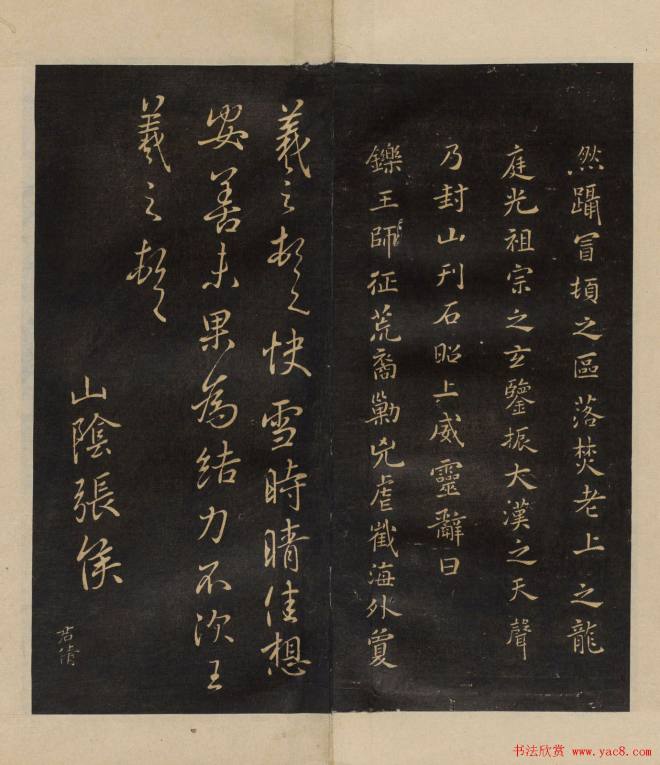 然躡冒頓之區落焚老上之龍
庭光祖宗之玄鑒振大漢之天聲
乃封山刊石昭上威靈辭曰
鑠王師征荒裔勦兇虐截海外夐
羲之頓首快雪時晴佳想
安善未果為結力不次王
羲之頓首
山陰張侯
君倩
书法欣赏 www.yac8.com